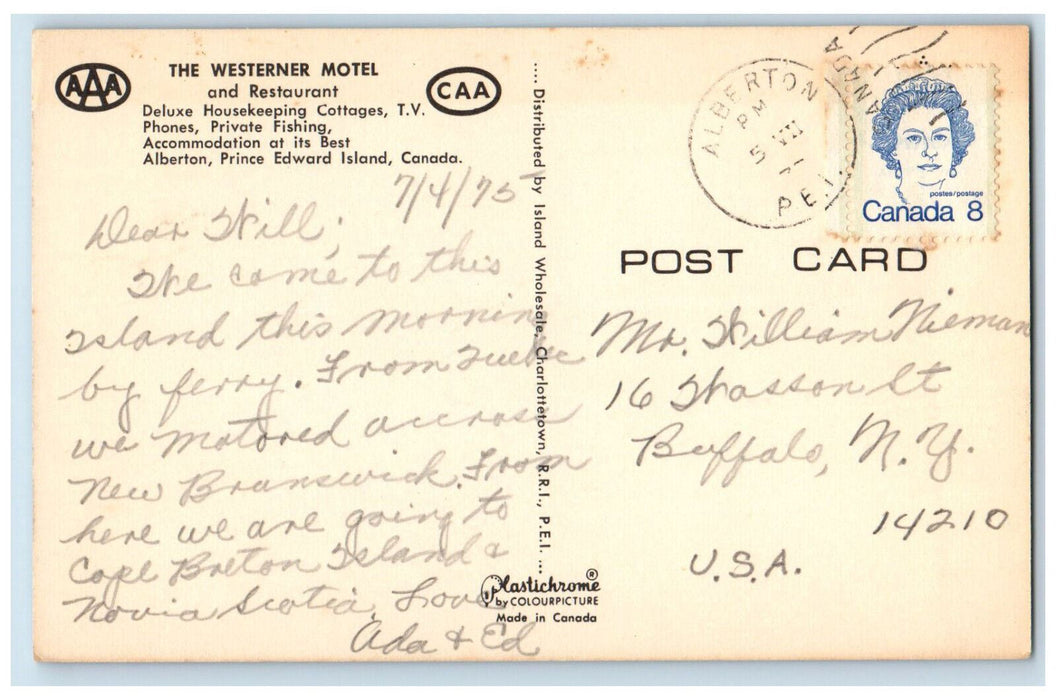 AAA
THE WESTERNER MOTEL
and Restaurant
Deluxe Housekeeping Cottages, T.V.
Phones, Private Fishing,
Accommodation at its Best
Alberton, Prince Edward Island, Canada.
CAA
7/4/75
Dear Will,
We came to this
Island this morning
by ferry. From Quebec
we motored accross
New Branswick. From
here we are going to
Cape Breton Island &
Novia Scotia, Love
Ada & Ed
.... Distributed by Island Wholesale, Charlottetown, R.R.I., P.E.I. ...
Plastichrome ®
by COLOURPICTURE
Made in Canada
ALBERTON
PM
5 VII
P.E.I.
CANADA
postes/postage
Canada 8
POST CARD
Mr. William Nieman
16 Wasson St
Buffalo, N.Y.
14210
U.S.A.